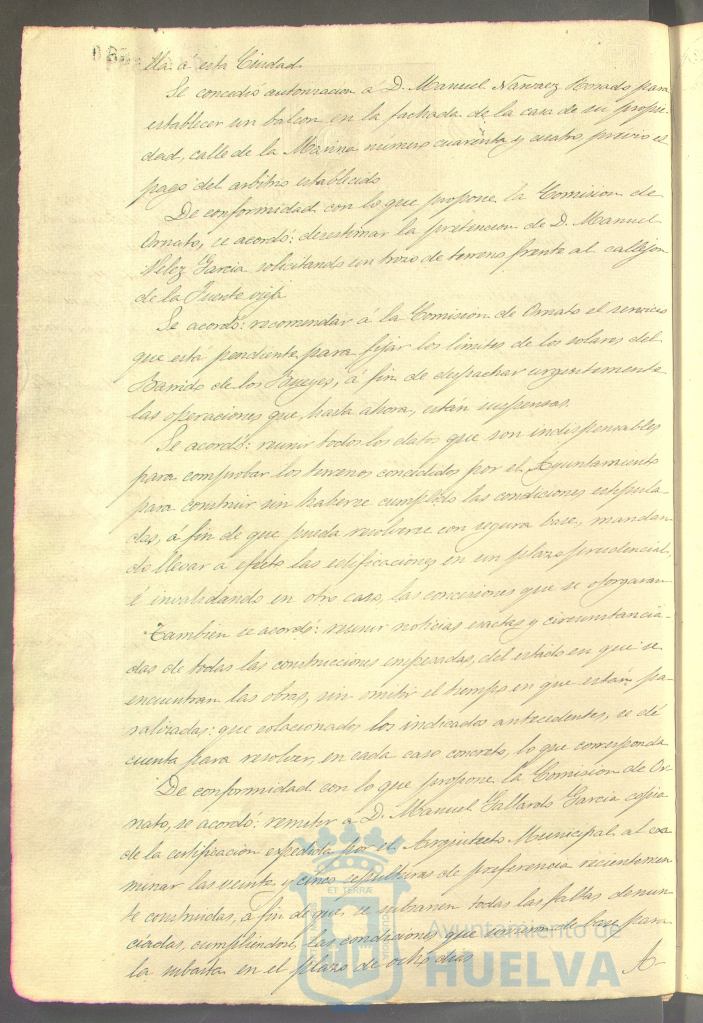 lla á esta Ciudad.
Se concedió autorizacion á D. Manuel Narvaez Rosado para
establecer un balcon en la fachada de la casa de su propie-
dad, calle de la Marina número cuarenta y cuatro previo el
pago del arbitrio establecido
De conformidad con lo que propone la Comision de
Ornato, se acordó: desestimar la pretension de D. Manuel
Velez Garcia solicitando un trozo de terreno frente al callejon
de la Fuente vieja.
Se acordó: recomendar á la Comision de Ornato el servicio
que está pendiente para fijar los limites de los solares del
Barrido de los Bueyes, á fin de despachar urgentemente
las operaciones que, hasta ahora, están suspensas.
Se acordó: reunir todos los datos que son indispensables
para comprobar los terrenos concedidos por el Ayuntamiento
para construir sin haberse cumplido las condiciones estipula-
das, á fin de que pueda resolverse con segura base, mandan-
do llevar a efecto las edificaciones en un plazo prudencial,
é invalidando en otro caso, las concesiones que se otorgaran
Tambien se acordó: reunir noticias exactas y circunstancia-
das de todas las construcciones empezadas, del estado en que se
encuentran las obras, sin omitir el tiempo en que estan pa-
ralizadas: que relacionados los indicados antecedentes, se dé
cuenta para resolver, en cada caso concreto, lo que corresponda
De conformidad con lo que propone la Comision de Or-
nato, se acordó: remitir a D. Manuel Gallardo Garcia copia
de la certificacion expedida por el Arquitecto Municipal al exa-
minar las veinte y cinco sepulturas de preferencia recientemen-
te construidas, á fin de que se subsanen todas las faltas denun-
ciadas, cumpliendose las condiciones que sirvieron de base para
la subasta en el plazo de ocho dias
A
ET TERRÆ
Ayuntamiento de
HUELVA